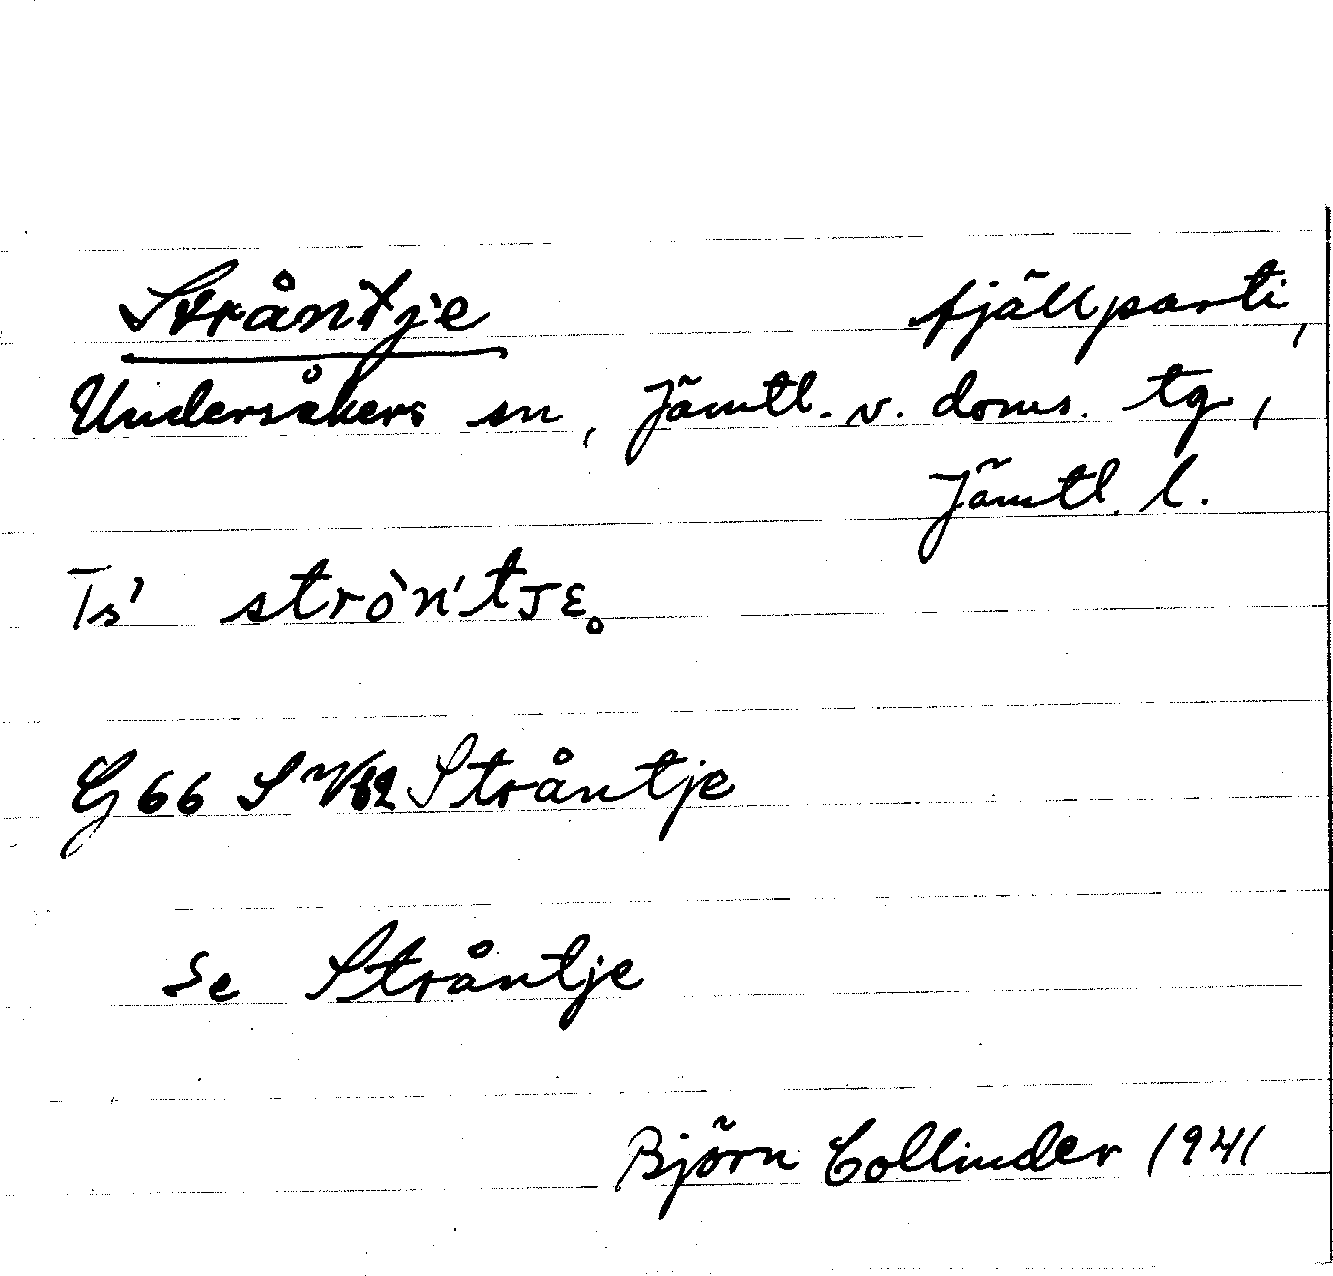 Stråntje fjällparti,
Undersåkers sn, Jämtl. v. doms. tg,
Jämtl. l.
strò̀n'tJɛ
G 66 S Stråntje
Se Stråntje
Björn Collinder 1941